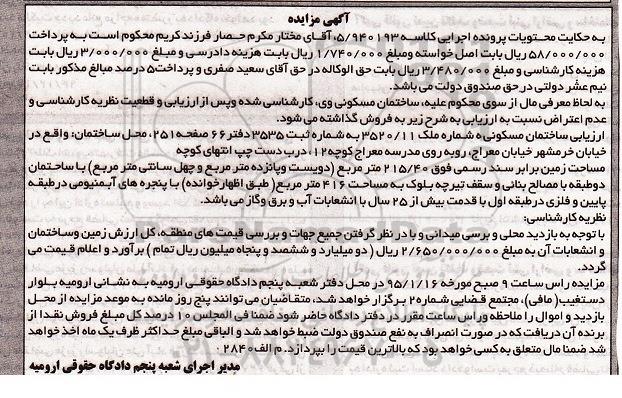 آگهی مزایده
به حکایت محتویات پرونده اجرایی کلاسه ۵/۹۴۰۱۹۳، آقای مختار مکرم حصار فرزند کریم محکوم است به پرداخت
۵۸/۰۰۰/۰۰۰ ریال بابت اصل خواسته ومبلغ ۱/۷۴۰/۰۰۰ ریال بابت هزینه دادرسی و مبلغ ۳/۰۰۰/۰۰۰ ریال بابت
هزینه کارشناسی و مبلغ ۳/۴۸۰/۰۰۰ ریال بابت حق الوکاله در حق آقای سعید صفری و پرداخت۵ درصد مبالغ مذکور بابت
نیم عشر دولتی در حق صندوق دولت می باشد.
به لحاظ معرفی مال از سوی محکوم علیه، ساختمان مسکونی وی، کارشناسی شده وپس از ارزیابی و قطعیت نظریه کارشناسی و
عدم اعتراض نسبت به ارزیابی به شرح زیر به فروش گذاشته می شود.
ارزیابی ساختمان مسکونی به شماره ملک ۳۵۲۰/۱۱ به شماره ثبت ۳۵۳۵ دفتر ۶۶ صفحه ۲۵۱، محل ساختمان: واقع در
خیابان خرمشهر خیابان معراج، روبه روی مدرسه معراج کوچه۱۲، درب دست چپ انتهای کوچه
مساحت زمین برابر سند رسمی فوق ۲۱۵/۴۰ متر مربع (دویست وپانزده متر مربع و چهل سانتی متر مربع) با ساختمان
دوطبقه با مصالح بنائی و سقف تیرچه بلوک به مساحت ۴۱۶ متر مربع( طبق اظهارخوانده) با پنجره های آبمنیومی درطبقه
پایین و فلزی درطبقه اول با قدمت بیش از ۲۵ سال با انشعابات آب و برق وگاز می باشد.
نظریه کارشناسی:
با توجه به بازدید محلی و بررسی میدانی و با در نظر گرفتن جمیع جهات و بررسی قیمت های منطقه، کل ارزش زمین وساختمان
و انشعابات آن به مبلغ ۲/۶۵۰/۰۰۰/۰۰۰ ریال ( دو میلیارد و ششصد و پنجاه میلیون ریال تمام ) برآورد و اعلام قیمت می
گردد.
مزایده راس ساعت ۹ صبح مورخه ۹۵/۱/۱۶ در محل دفتر شعبه پنجم دادگاه حقوقی ارومیه به نشانی ارومیه بلوار
دستغیب( مافی)، مجتمع قضایی شماره۲ برگزار خواهد شد، متقاضیان می توانند پنج روز مانده به موعد مزایده از محل
بازدید و اموال را ملاحظه وراس ساعت مقرر در دفتر دادگاه حاضر شود ضمنا فی المجلس ۱۰ درصد کل مبلغ فروش نقدا از
برنده آن دریافت که در صورت انصراف به نفع صندوق دولت ضبط خواهد شد و الباقی مبلغ حداکثر ظرف یک ماه اخذ خواهد
شد ضمنا مال متعلق به کسی خواهد بود که بالاترین قیمت را بپردازد. م الف ۲۸۴۰
مدیر اجرای شعبه پنجم دادگاه حقوقی ارومیه